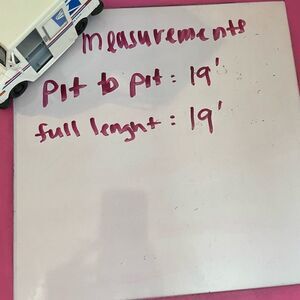 measurements
Pit to pit: 19'
full lenght: 19'